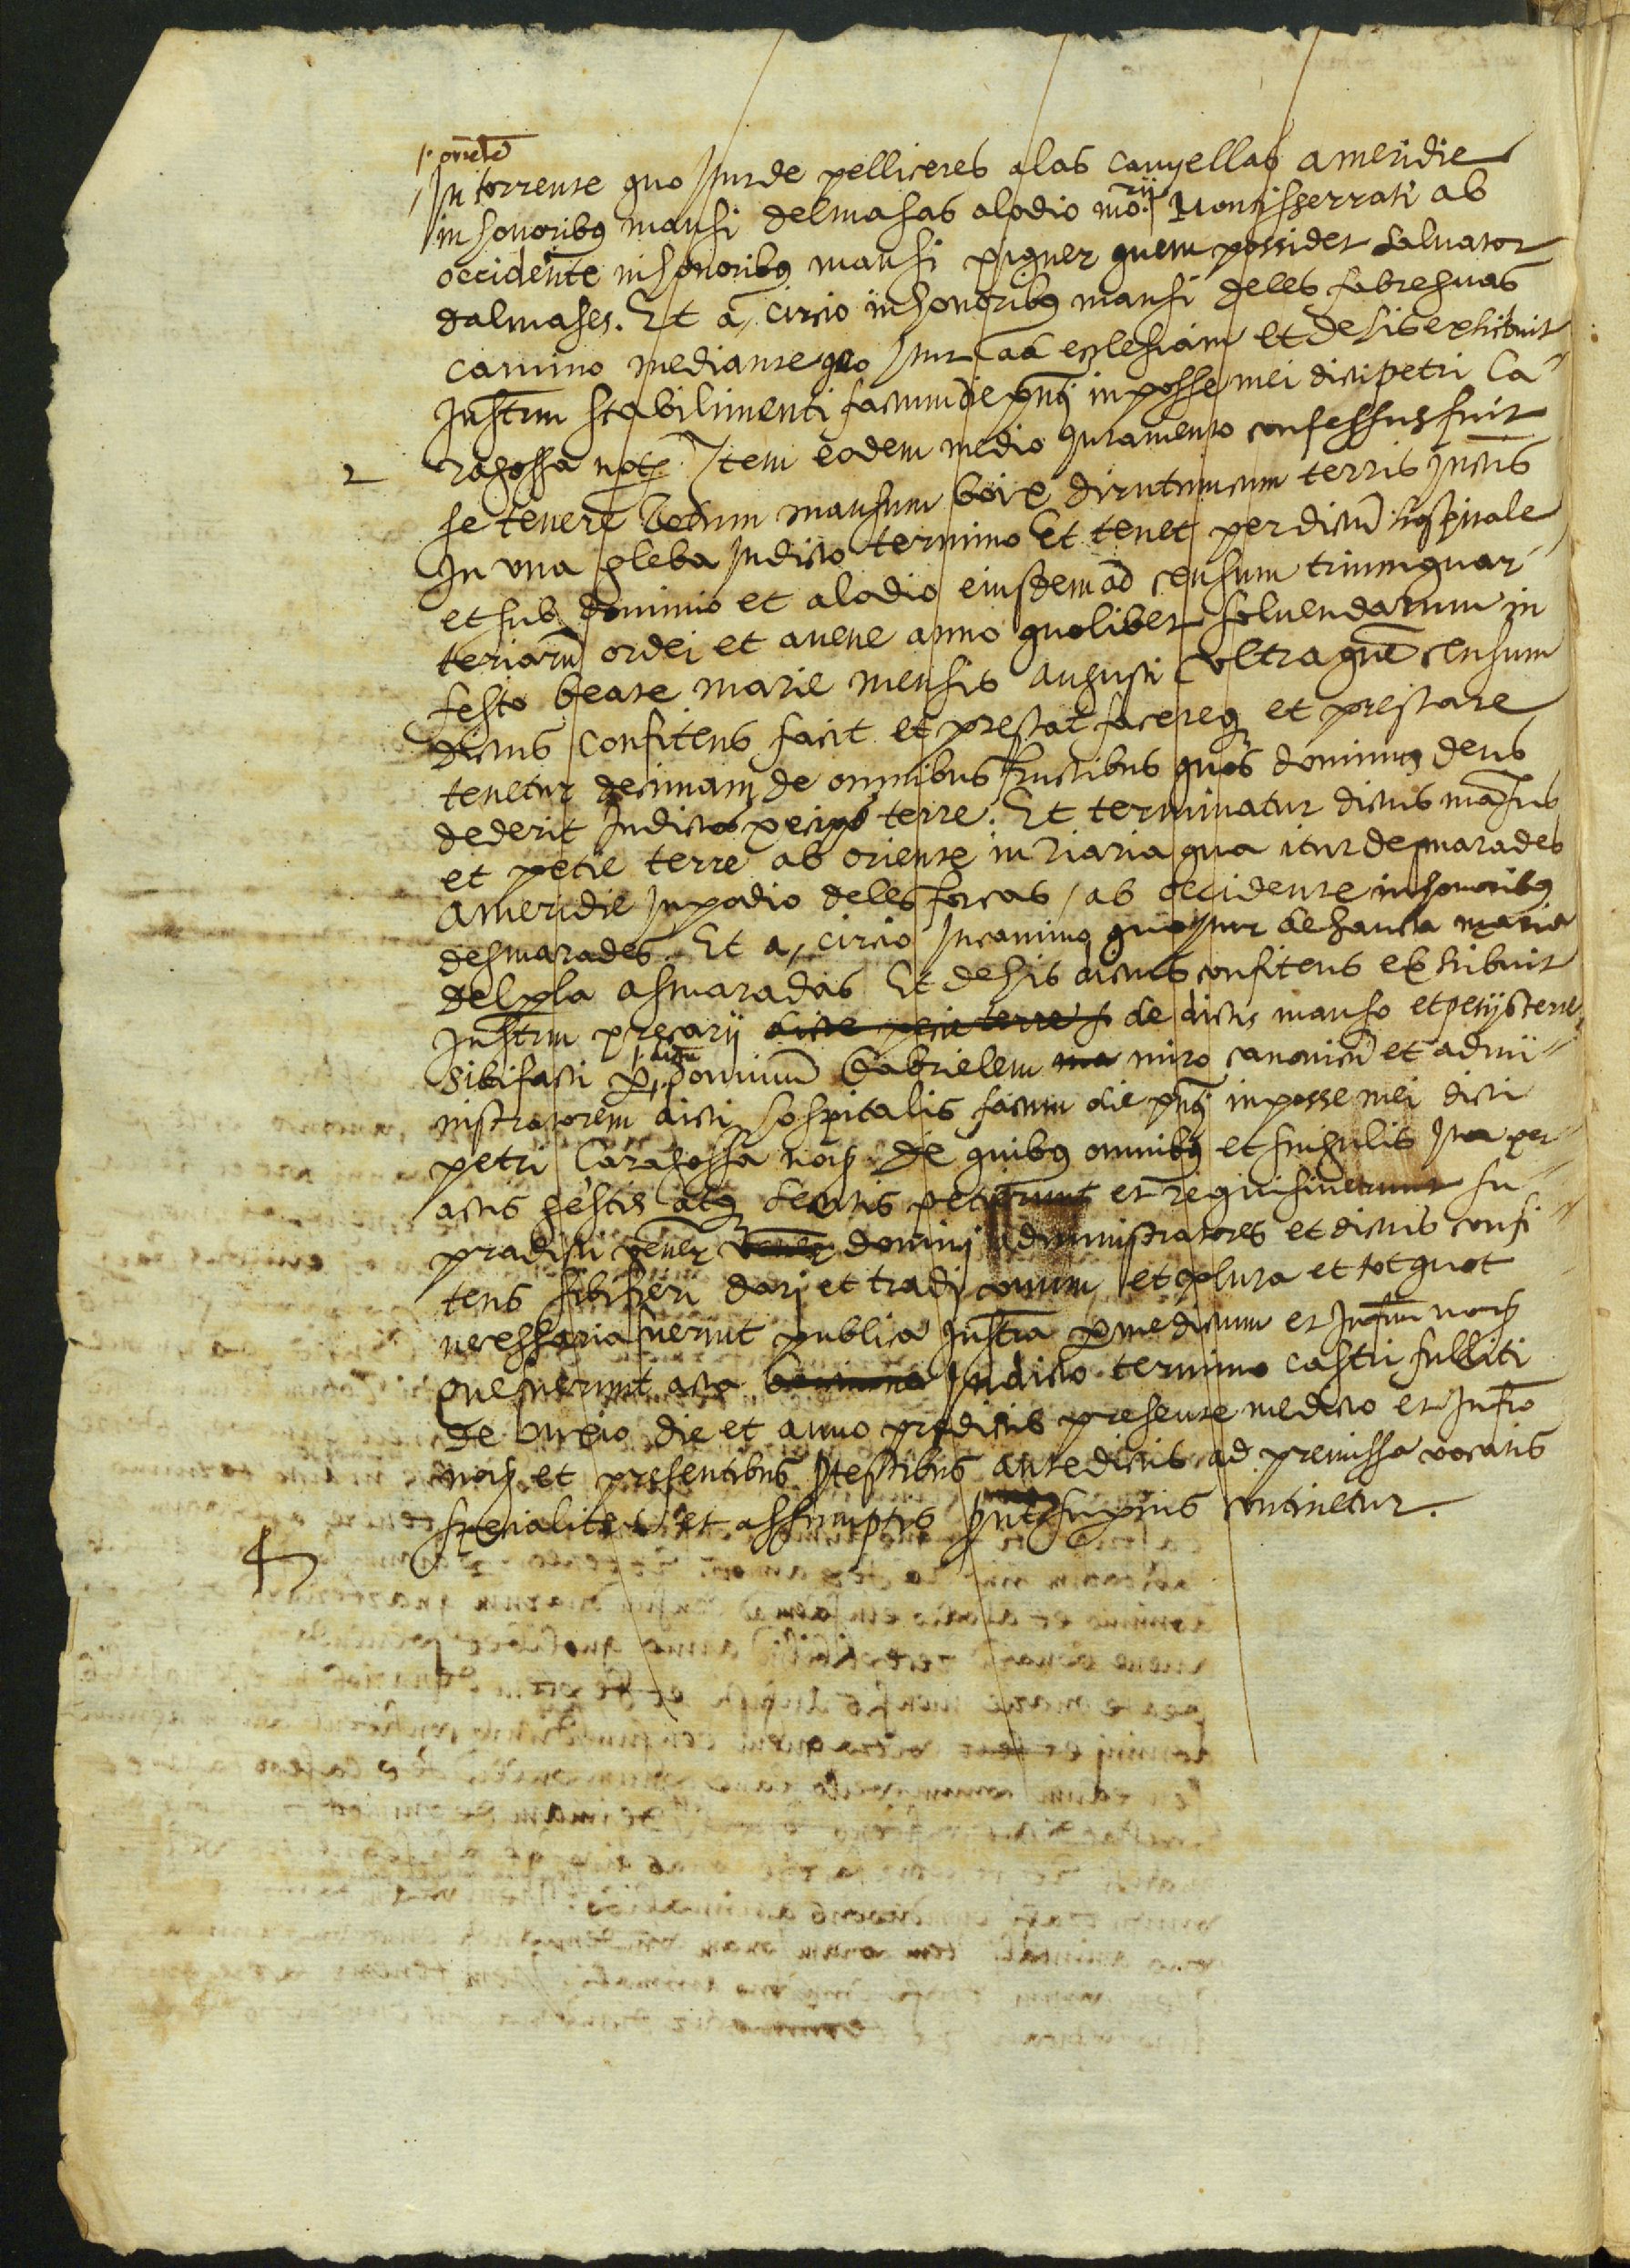 / oriete
In torrente quo Itur de pelliceres a las canyellas a meridie
in honoribus mansi del masas alodio mo.rij Montisserrati ab
occidente in honoribus mansi piquer quem possidet Saluator
dalmases. Et a, circio in honoribus mansi de les fabreguas
camino mediante quo Itur ad eclesiam et de his exhibuit
Instrm stabilimenti factum die pnti in posse mei dicti petri Ca-
2 ragossa notz. Item eodem medio Iuramento confessus fuit
se tenere totum mansum boix dirutum cum terris Iunctis
In vna gleba In dicto termino Et tenet per dictu hospitale
et sub dominio et alodio eiusdem ad censum trium quar-
teriaru ordei et auene anno quolibet soluendarum in
festo beate marie mensis augusti vltra que censum
dictus confitens facit et prestat facereq et prestare
tenetur decimam de omnibus fructibus quos dominus deus
dederit In dictis petijs terre. Et terminatur dictus mansus
et petie terre ab oriente in riaria qua itur de smarades
a meridie In podio de les forcas / ab occidente in honoribus
desmarades. Et a, circio In camino quo Itur de sancta maria
del pla a smaradas Et de his dictus confitens exhibuit
Instrm precarij dicte pecie terre f de dictis manso et petijs terre
sibi facti p, / dictu dominum Gabrielem ma miro canonicu et admi-
nistratorem dicti hospitalis factum die pnti in posse mei dicti
petri Caragossa notz de quibus omnibus et singulis Ita per-
actis gestis atq secutis petierunt et requisiuerunt su-
pradicti vener vener domini administratores et dictus confi-
tens sibi fieri dari et tradi vnum et plura et tot quot
necessaria fuerint publica Instra p me dictum et Infrm notz
que fuerunt acta In dicto termino castri sulliti
de odeio die et anno predictis presente me dicto et Infro
notz et presentibus testibus ante dictis ad premissa vocatis
specialiter et assumptis put supius continetur.